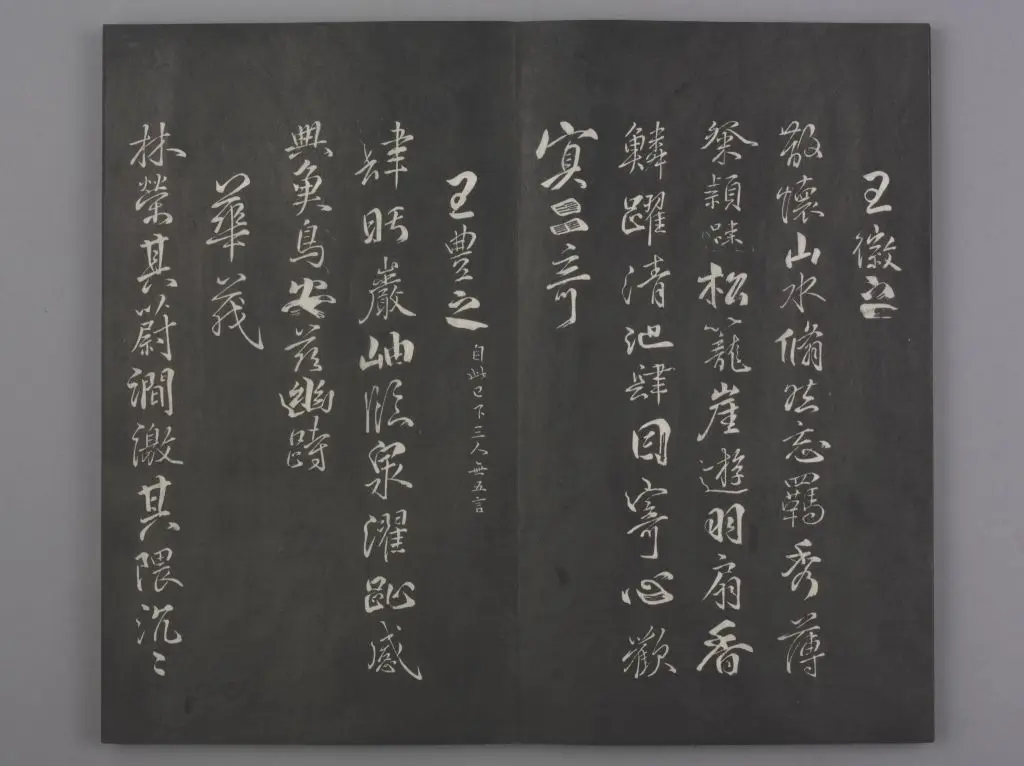 王徽之
散懷山水翛然忘羈秀薄
粲穎疎松籠崖遊羽扇香
鱗躍清池肆目寄心歡
冥二奇
王豐之 自此已下三人無五言
肆眄巖岫臨泉濯趾感
興魚鳥安茲幽跱
華茂
林榮其蔚澗激其隈汎〻